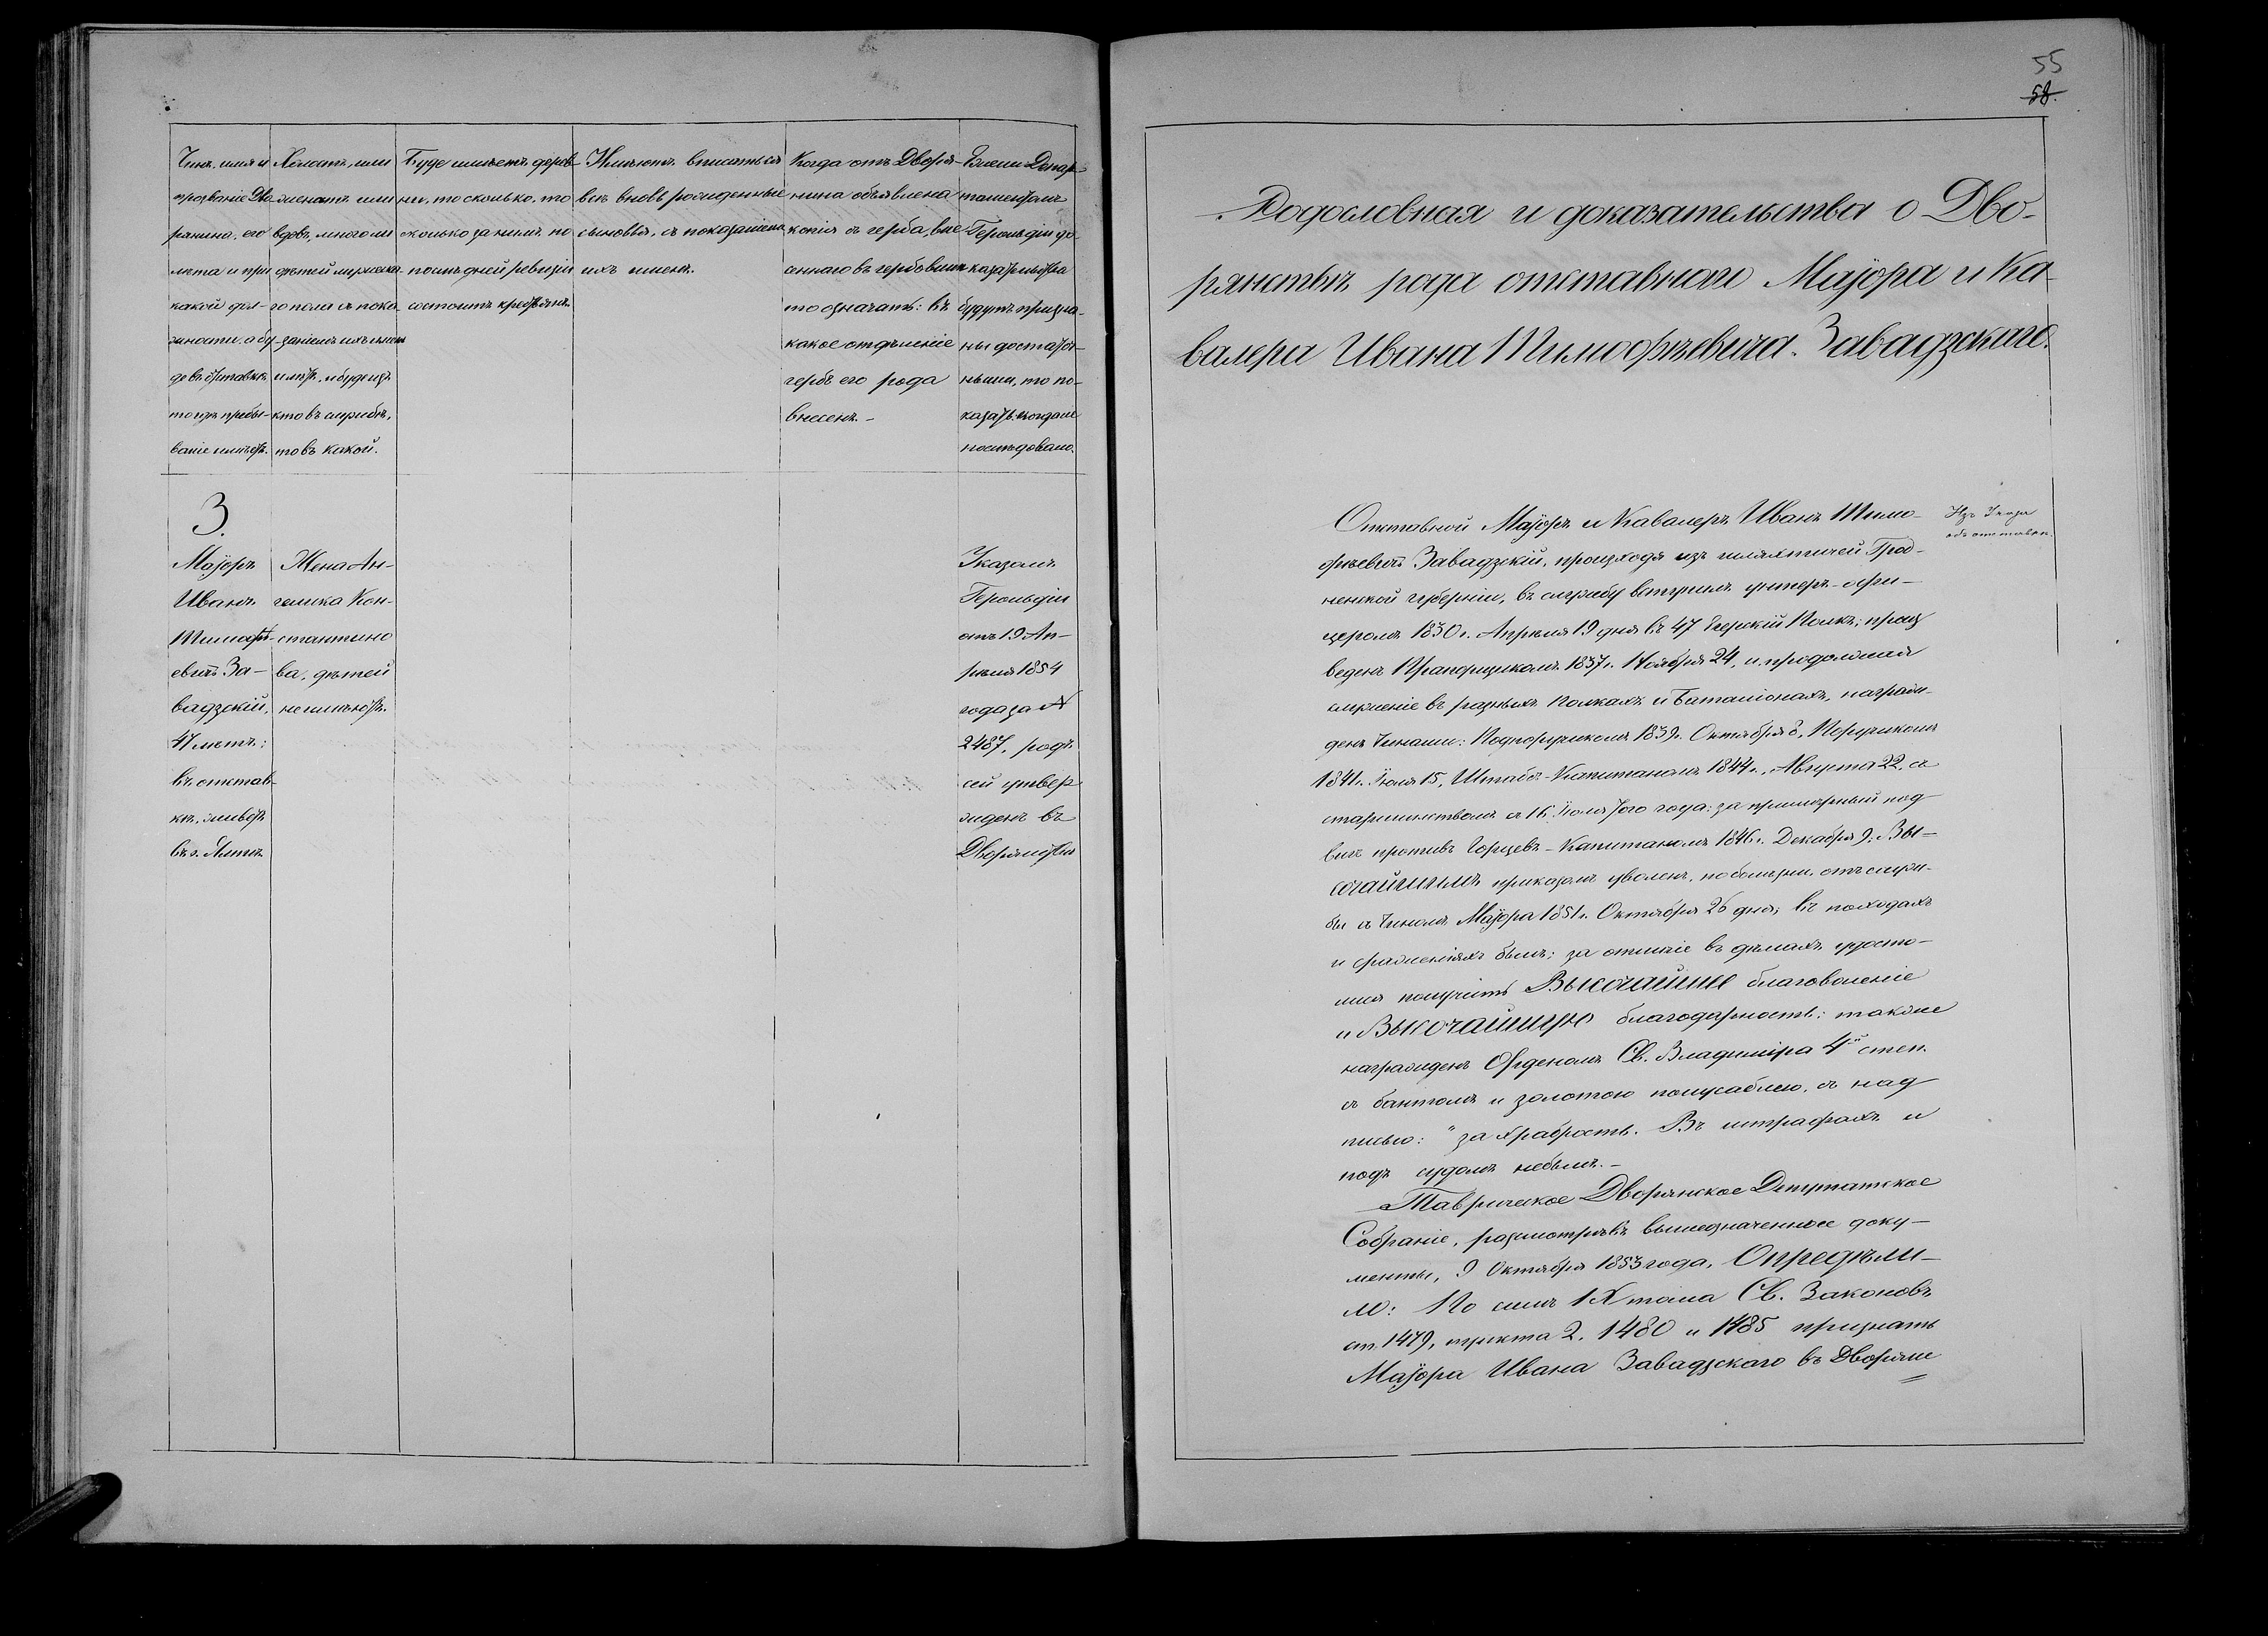 Чинъ, имя и
прозваніе Дво
рянина, его
лета и при
какой дол-
жности, а бу-
де въ отставке,
то где пребы-
ваніе имѣетъ.
Холостъ, или
женатъ или
вдовъ, много ли
дѣтей мужеска-
го пола съ пока-
заніемъ ихъ имен
и лѣтъ, и буде изъ
кто въ службѣ,
то въ какой.
Буде имѣетъ дерев-
ни, то сколько, то
сколько за нимъ по
послѣдней ревизіи
состоитъ крестьянъ.
Имѣютъ вписаться
всѣ вновь рожденные
сыновья, съ показаніемъ
ихъ именъ.
Когда отъ Дворя-
нина объявлена
копія съ герба, вне
сеннаго въ гербовникъ
то означать: въ
какое отдѣленіе
гербъ его рода
внесенъ.-
Ежели Депар
таментомъ
Герольдіи до
казательства
будутъ призна-
ны достаточ-
ными, то по-
казать, когда
послѣдовало.
3.
Маіоръ
Иванъ
Тимофѣ-
евичъ За-
вадзскій,
47 летъ;
въ отстав-
кѣ, живетъ
въ г. Ялтѣ
Жена Ан-
гелика Кон-
стантино
ва, дѣтей
неимѣютъ.
Указомъ
Герольдіи
отъ 19 Ап-
рѣля 1854
года за №
2487, родъ
сей утвер
жденъ въ
Дворянствѣ
55
58.
Родословная и доказательства о Дво-
рянствѣ рода отставнаго Маіора и Ка-
валера Ивана Тимофѣевича Завадзскаго.
Изъ Указа
объ отставкѣ.
Отставной Маіоръ и Кавалеръ Иванъ Тимо-
фѣевичъ Завадзскій, происходя изъ шляхтичей Грод-
ненской губерніи, въ службу вступилъ унтеръ-офи-
церомъ 1830 г. Апрѣля 19 дня въ 47 Егерскій Полкъ; произ
веденъ Прапорщикомъ 1837 г. Ноября 24, и продолжая
служеніе въ разныхъ полкахъ и Баталіонахъ, награж-
денъ Чинами: Подпоручикомъ 1839 г. Октября 8, Поручикомъ
1841 г. Іюля 15, Штабсъ-Капитаномъ 1844 г. Августа 22, съ
старшинствомъ съ 16 Іюля того года; за примѣрный под
вигъ противъ Горцевъ - Капитаномъ 1846 г. Декабря 9; Вы-
сочайшимъ приказомъ уволенъ, по болѣзни, отъ служ-
бы съ Чиномъ Маіора 1851 г. Октября 26 дня; въ походахъ
и сраженіяхъ былъ; за отличіе въ дѣлахъ удосто-
ился получить Высочайшее благоволеніе
и Высочайшую благодарность; также
награжденъ Орденомъ Св. Владиміра 4й степ.
съ бантомъ и золотою полусаблею, съ над
писью: "за храбрость. Въ штрафахъ и
подъ судомъ небылъ.-
Таврическое Дворянское Депутатское
Собраніе, разсмотрѣвъ вышеозначенные доку-
менты, 9 Октября 1853 года, Опредѣли-
ло: По силѣ IX тома Св. Законовъ
ст. 1479, пункта 2. 1480 и 1485 признать
Маіора Ивана Завадзскаго въ Дворян